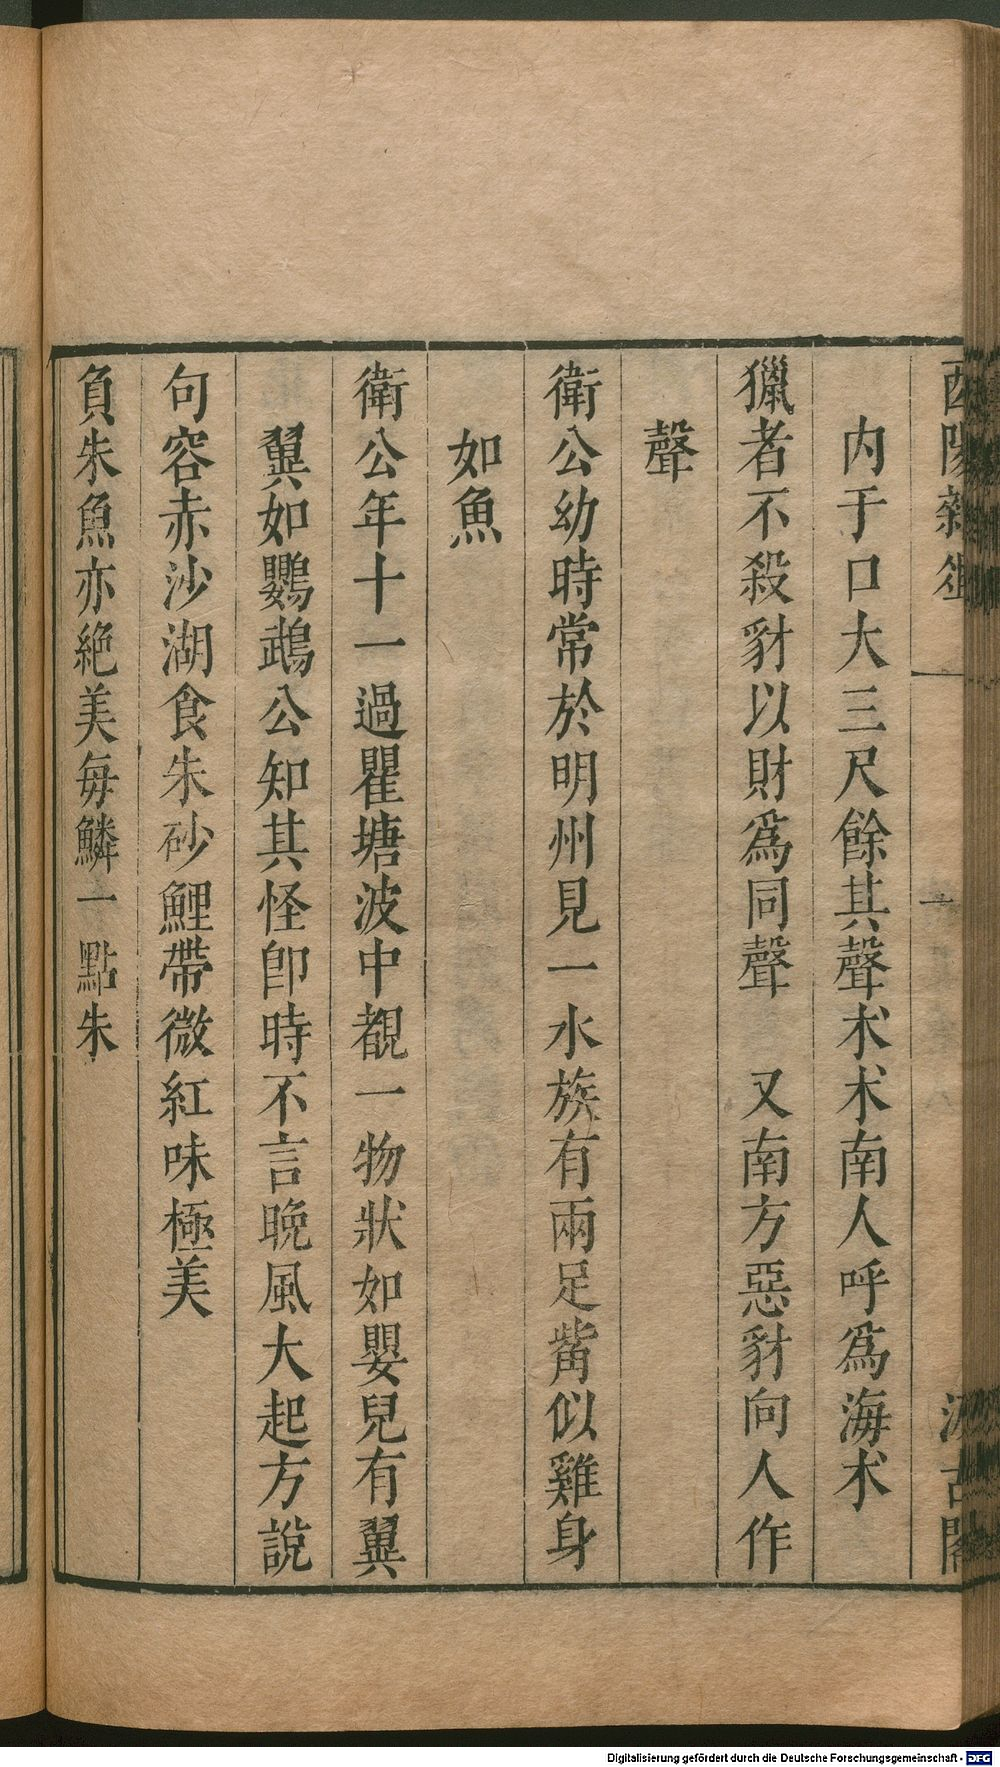 酉陽雜俎
汲古閣
内于口大三尺餘其聲术术南人呼爲海术
獵者不殺豺以財爲同聲　又南方惡豺向人作
聲
衛公幼時常於明州見一水族有兩足觜似雞身
如魚
衛公年十一過瞿塘波中覩一物狀如嬰兒有翼
翼如鸚鵡公知其怪卽時不言晚風大起方說
句容赤沙湖食朱砂鯉帶微紅味極美
負朱魚亦絶美每鱗一點朱
Digitalisierung gefördert durch die Deutsche Forschungsgemeinschaft - DFG